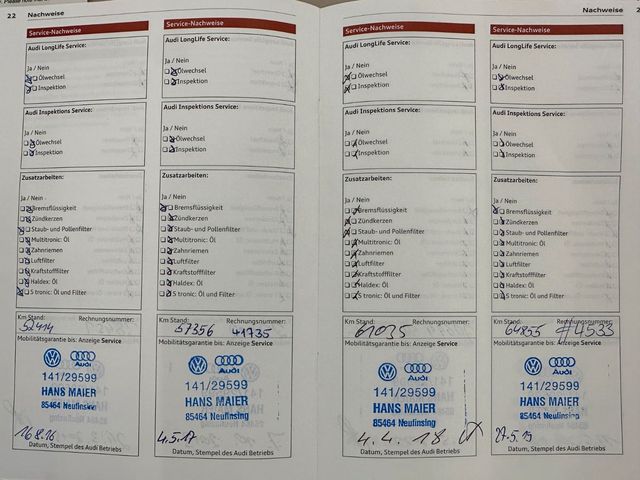 22 Nachweise
Service-Nachweise
Audi LongLife Service:
Ja / Nein
Ölwechsel
Inspektion
Audi Inspektions Service:
Ja / Nein
Ölwechsel
Inspektion
Zusatzarbeiten:
Ja / Nein
Bremsflüssigkeit
Zündkerzen
Staub- und Pollenfilter
Multitronic: Öl
Zahnriemen
Luftfilter
Kraftstofffilter
Haldex: Öl
S tronic: Öl und Filter
Km Stand: Rechnungsnummer:
52414
Mobilitätsgarantie bis: Anzeige Service
Audi
141/29599
HANS MAIER
85464 Neufinsing
16.8.16
Datum, Stempel des Audi Betriebs
Service-Nachweise
Audi LongLife Service:
Ja / Nein
Ölwechsel
Inspektion
Audi Inspektions Service:
Ja / Nein
Ölwechsel
Inspektion
Zusatzarbeiten:
Ja / Nein
Bremsflüssigkeit
Zündkerzen
Staub- und Pollenfilter
Multitronic: Öl
Zahnriemen
Luftfilter
Kraftstofffilter
Haldex: Öl
S tronic: Öl und Filter
Km Stand: Rechnungsnummer:
57356 41735
Mobilitätsgarantie bis: Anzeige Service
Audi
141/29599
HANS MAIER
85464 Neufinsing
4.5.17
Datum, Stempel des Audi Betriebs
Nachweise
Service-Nachweise
Audi LongLife Service:
Ja / Nein
Ölwechsel
Inspektion
Audi Inspektions Service:
Ja / Nein
Ölwechsel
Inspektion
Zusatzarbeiten:
Ja / Nein
Bremsflüssigkeit
Zündkerzen
Staub- und Pollenfilter
Multitronic: Öl
Zahnriemen
Luftfilter
Kraftstofffilter
Haldex: Öl
S tronic: Öl und Filter
Km Stand: Rechnungsnummer:
61035
Mobilitätsgarantie bis: Anzeige Service
Audi
141/29599
HANS MAIER
85464 Neufinsing
4.4.18
Datum, Stempel des Audi Betriebs
Service-Nachweise
Audi LongLife Service:
Ja / Nein
Ölwechsel
Inspektion
Audi Inspektions Service:
Ja / Nein
Ölwechsel
Inspektion
Zusatzarbeiten:
Ja / Nein
Bremsflüssigkeit
Zündkerzen
Staub- und Pollenfilter
Multitronic: Öl
Zahnriemen
Luftfilter
Kraftstofffilter
Haldex: Öl
S tronic: Öl und Filter
Km Stand: Rechnungsnummer:
64855 #4533
Mobilitätsgarantie bis: Anzeige Service
Audi
141/29599
HANS MAIER
85464 Neufinsing
27.5.19
Datum, Stempel des Audi Betriebs